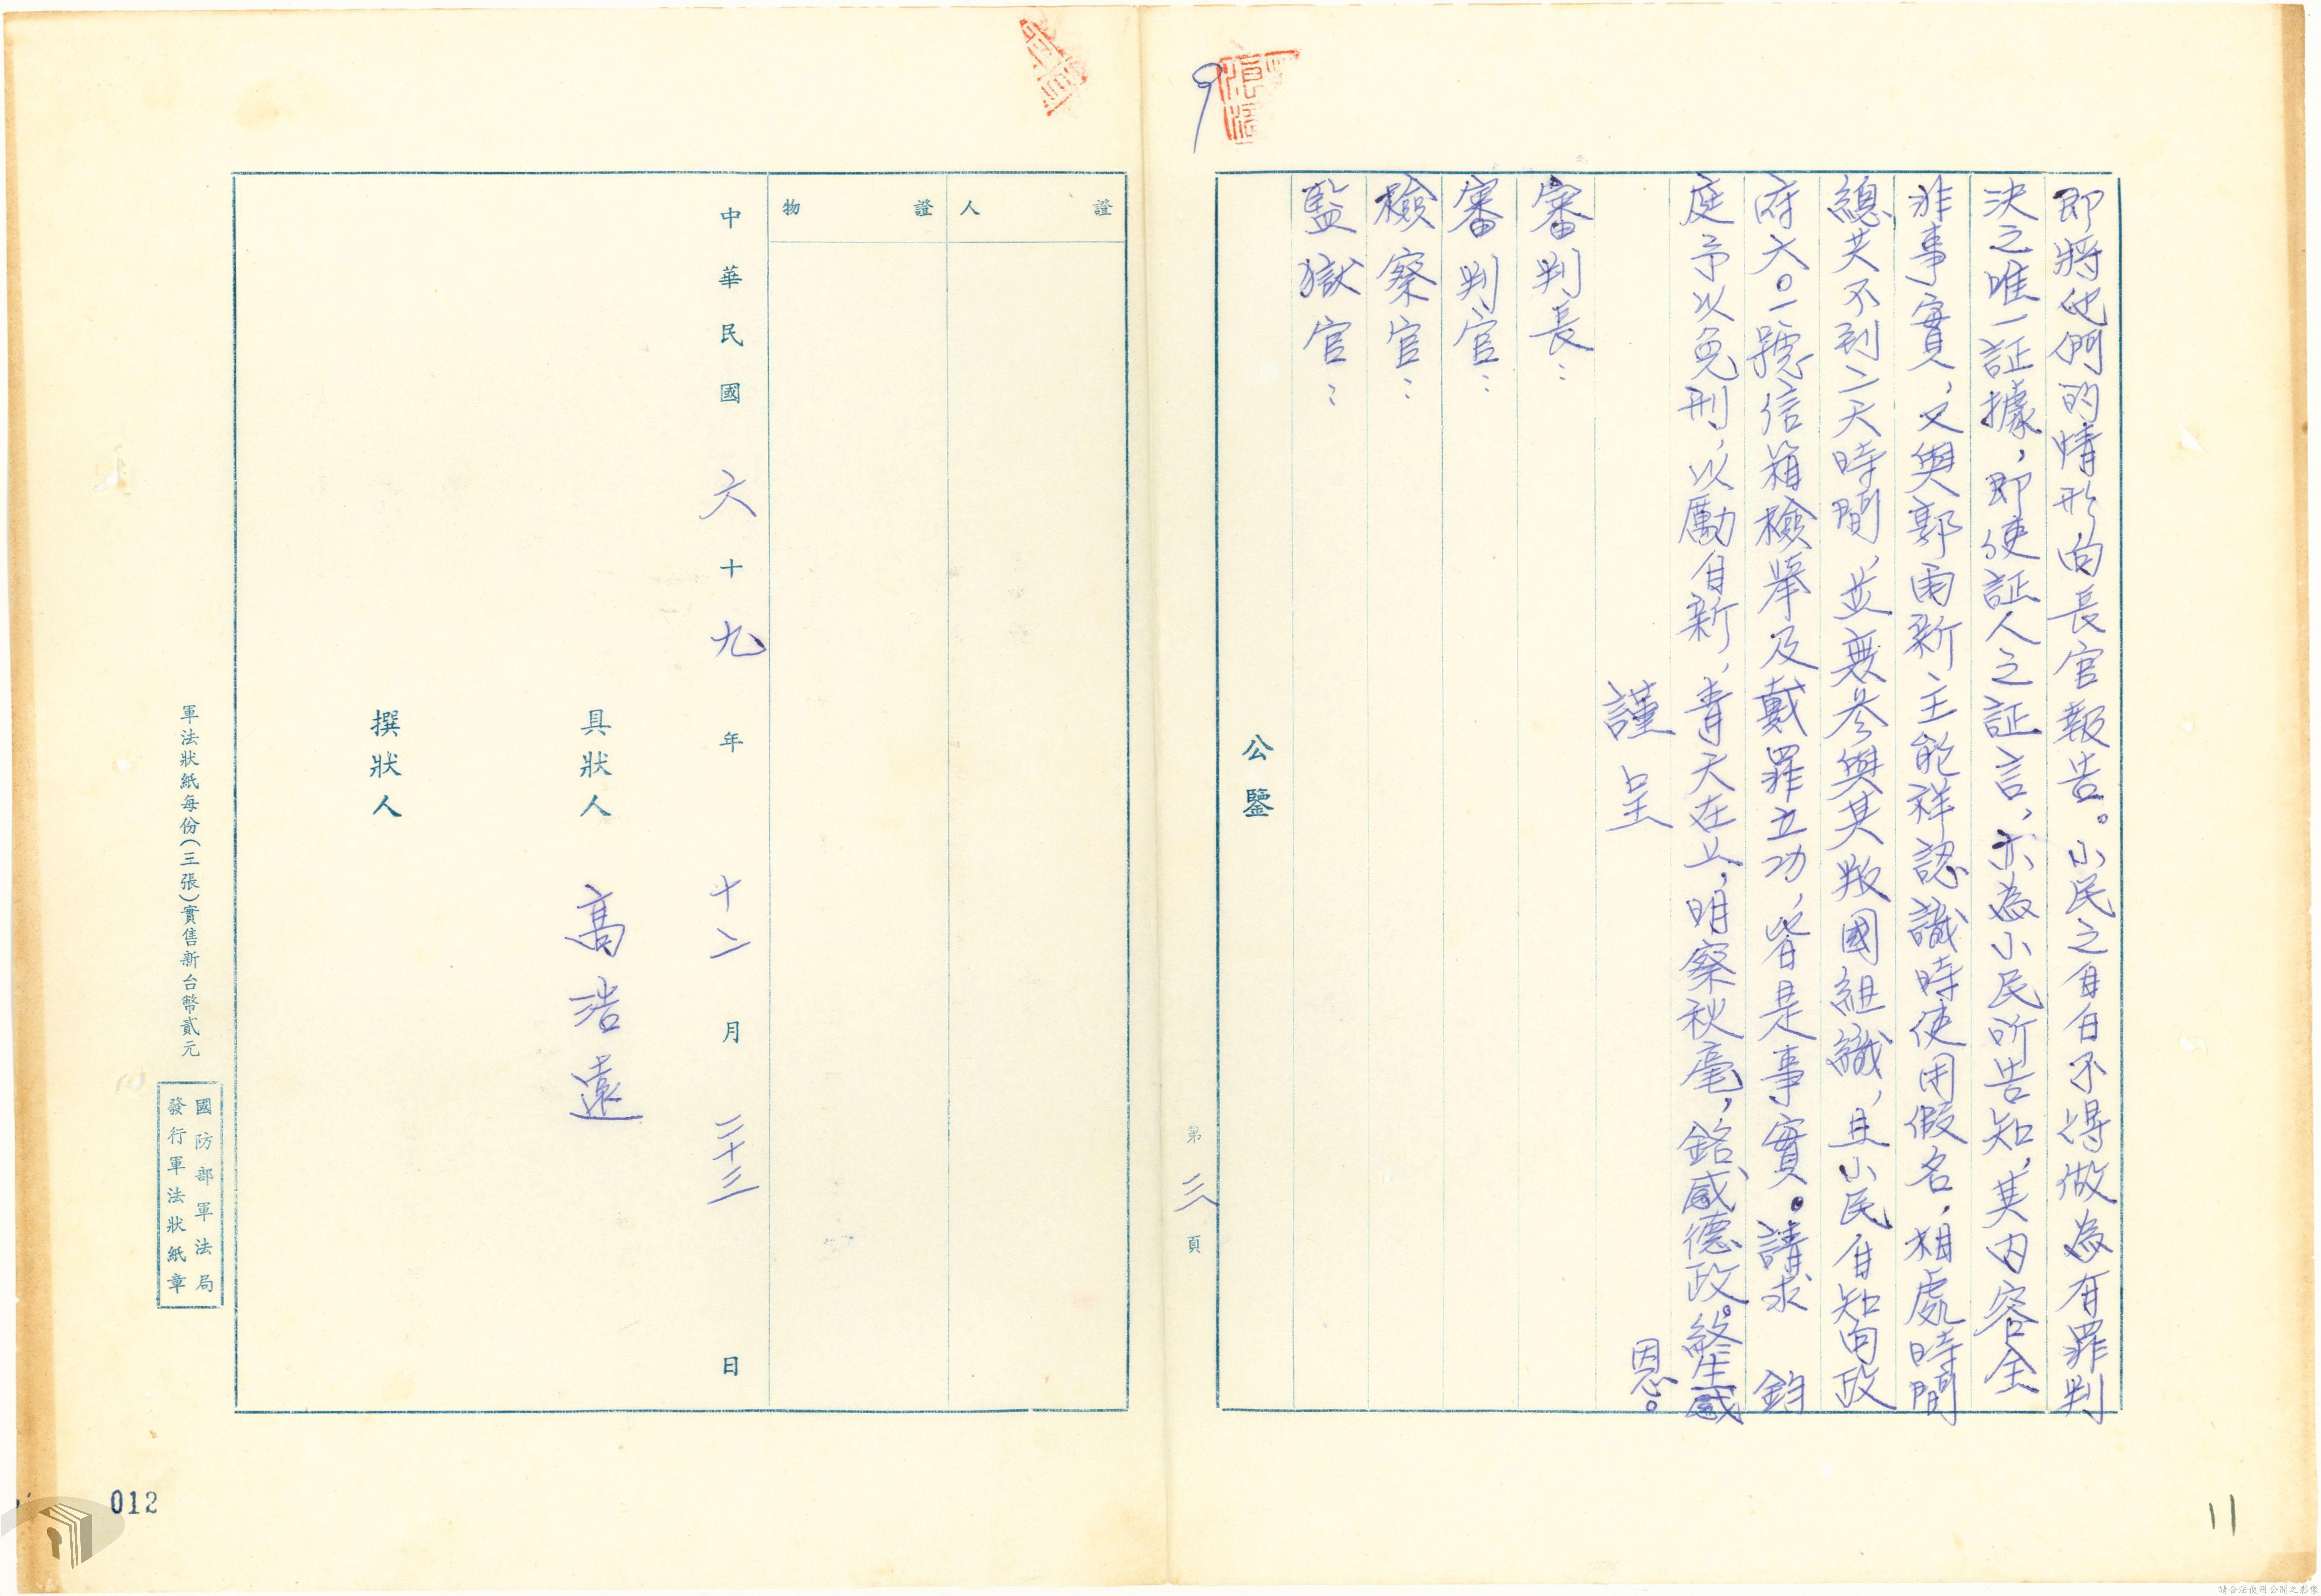 即將他們的情形向長官報告。小民之自白不得做為有罪判
決之唯一証據，即使証人之証言，亦為小民所告知，其內容全
非事實，又與郭雨新主能祥認識時使用假名，相處時間
總共不到二天時間，並無參與其叛國組織，且小民自知向政
府大。一號信箱檢舉及戴罪立功，皆是事實。請求 鈞
庭予以免刑，以勵自新，青天在上，明察秋毫，銘感德政。終生感
恩。
謹呈
審判長：
審判官：
檢察官：
監獄官：
公鑒
第三頁
證人
證物
中華民國六十九年十二月二十三日
具狀人 高浩遠
撰狀人
軍法狀紙每份（三張）實售新台幣貳元
國防部軍法局
發行軍法狀紙章
012
11
請合法使用公開之影像